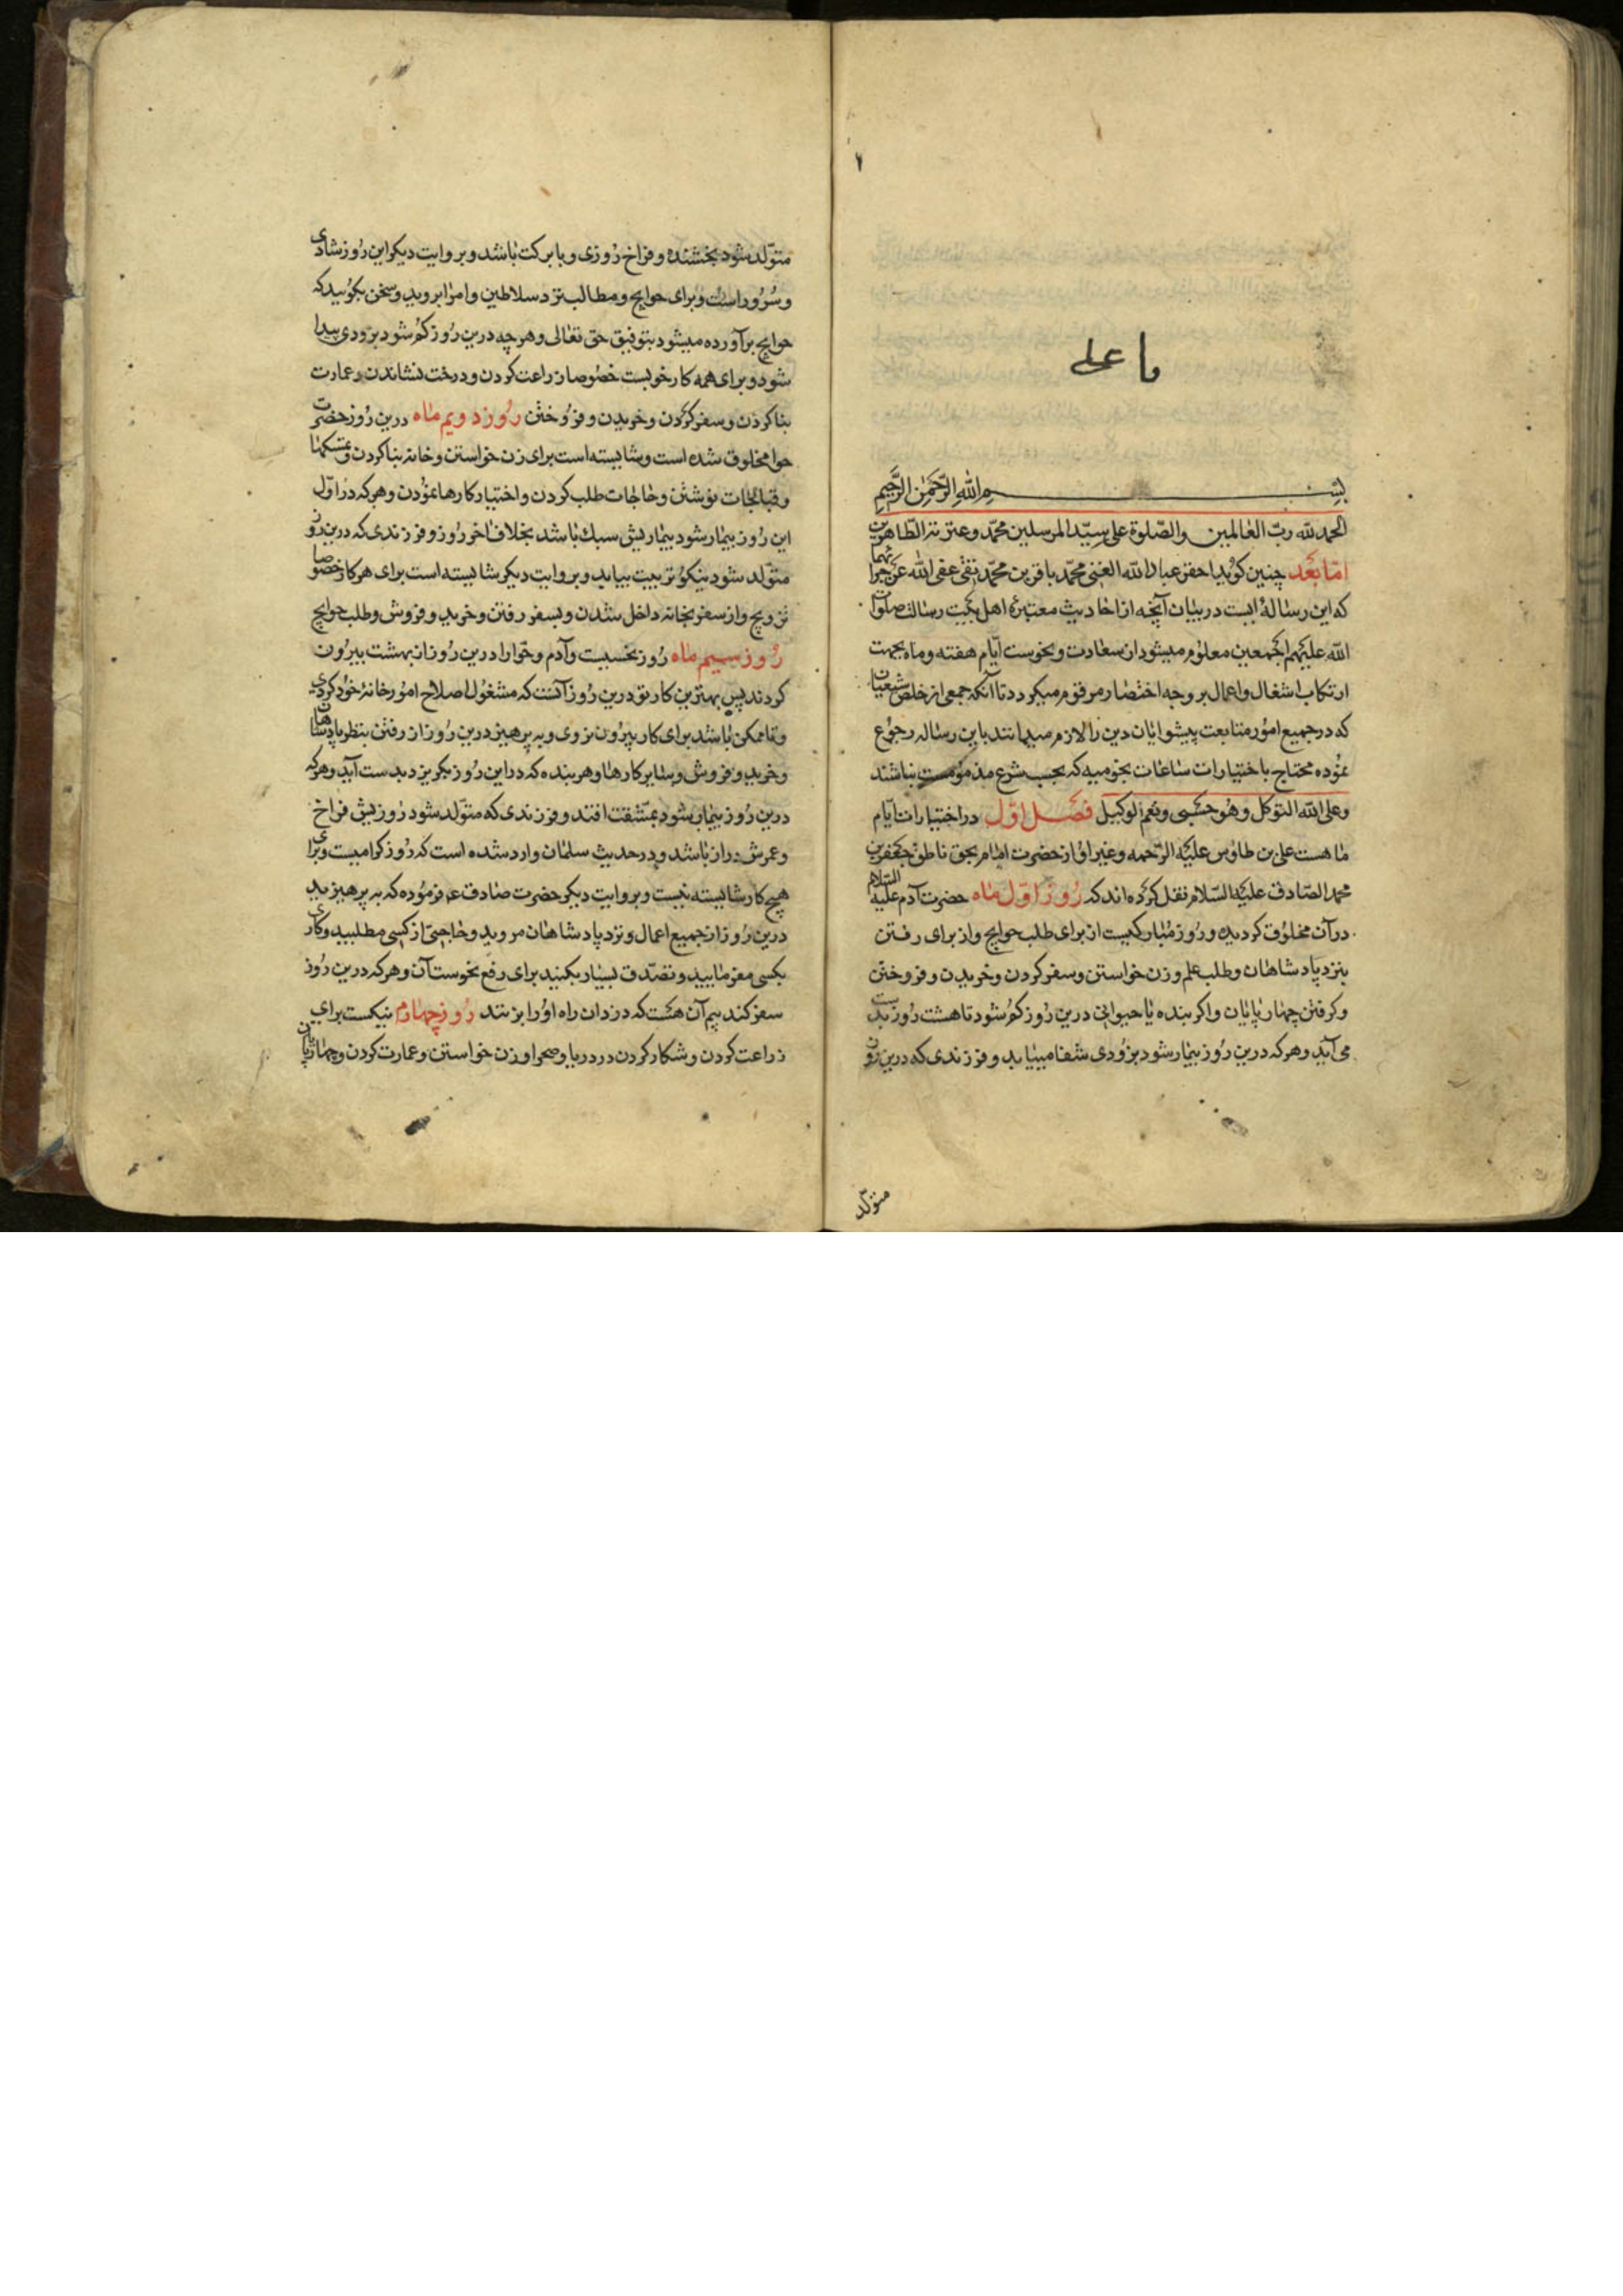 ۱
یا علی
بسم الله الرحمن الرحیم
الحمد لله رب العالمین والصلوة علی سید المرسلین محمد وعترته الطاهرین
اما بعد چنین کوید احقر عباد الله الغنی محمد باقر بن محمد تقی عفی الله عن جرائمهما
که این رساله ایست در بیان آنچه از احادیث معتبره اهل بیت رسالت صلوات
الله علیهم اجمعین معلوم میشود از سعادت و نحوست ایام هفته و ماه بجهت
ارتکاب اشغال و اعمال بر وجه اختصار مرقوم میکردد تا آنکه جمعی از خلص شیعیان
که در جمیع امور متابعت پیشوایان دین را لازم میدانند باین رساله رجوع
نموده محتاج باختیارات ساعات نجومیه که بحسب شرع مذمومست نباشند
وعلی الله التوکل وهو حسبی ونعم الوکیل فصل اول در اختیارات ایام
ماهست علی بن طاوس علیه الرحمه وغیر او از حضرت امام بحق ناطق جعفر بن
محمد الصادق علیه السلام نقل کرده اند که روز اول ماه حضرت آدم علیه السلام
درآن مخلوق کردیده و روز مبارکیست از برای طلب حوایج واز برای رفتن
بنزد پادشاهان وطلب علم وزن خواستن وسفر کردن وخریدن وفروختن
وکرفتن چهارپایان واکر بنده یا حیوانی درین روز کم شود تا هشت روز بدست
می آید وهرکه درین روز بیمار شود بزودی شفا مییابد وفرزندی که درین روز
متولد
متولد شود بخشنده وفراخ روزی وبابرکت باشد وبروایت دیکر این روز شادی
وسرور است وبرای حوایج ومطالب نزد سلاطین وامرا بروید وسخن بکویید که
حوایج برآورده میشود بتوفیق حق تعالی وهرچه درین روز کم شود بزودی پیدا
شود وبرای همه کار خوبست خصوصا زراعت کردن ودرخت نشاندن وعمارت
بنا کردن وسفر کردن وخریدن وفروختن روز دویم ماه درین روز حضرت
حوا مخلوق شده است وشایسته است برای زن خواستن وخانه بنا کردن وتمسکها
وقبالجات نوشتن وحاجات طلب کردن واختیار کارها نمودن وهرکه در اول
این روز بیمار شود بیماریش سبک باشد بخلاف آخر روز وفرزندی که درین روز
متولد شود نیکو تربیت بیابد وبروایت دیکر شایسته است برای هر کار خصوصا
تزویج واز سفر بخانه داخل شدن وبسفر رفتن وخرید وفروش وطلب حوایج
روز سیم ماه روز نحسیست وآدم وحوا را درین روز از بهشت بیرون
کردند پس بهترین کار تو درین روز آنست که مشغول اصلاح امور خانه خود کردی
وتا ممکن باشد برای کار بیرون نروی وبپرهیز درین روز از رفتن بنظر پادشاهان
وخرید وفروش وسایر کارها وهر بنده که در این روز بکریزد بدست آید وهرکه
درین روز بیمار شود بمشقت افتد وفرزندی که متولد شود روزیش فراخ
وعمرش دراز باشد ودر حدیث سلمان وارد شده است که روز کرامیست وبرای
هیچ کار شایسته نیست وبروایت دیکر حضرت صادق ع فرموده که بپرهیزید
درین روز از جمیع اعمال ونزد پادشاهان مروید وحاجتی از کسی مطلبید وکاری
بکسی مفرمایید وتصدق بسیار بکنید برای رفع نحوست آن وهرکه درین روز
سفر کند بیم آن هست که دزدان راه او را بزنند روز چهارم نیکست برای
زراعت کردن وشکار کردن در دریا وصحرا وزن خواستن وعمارت کردن وچهارپایان